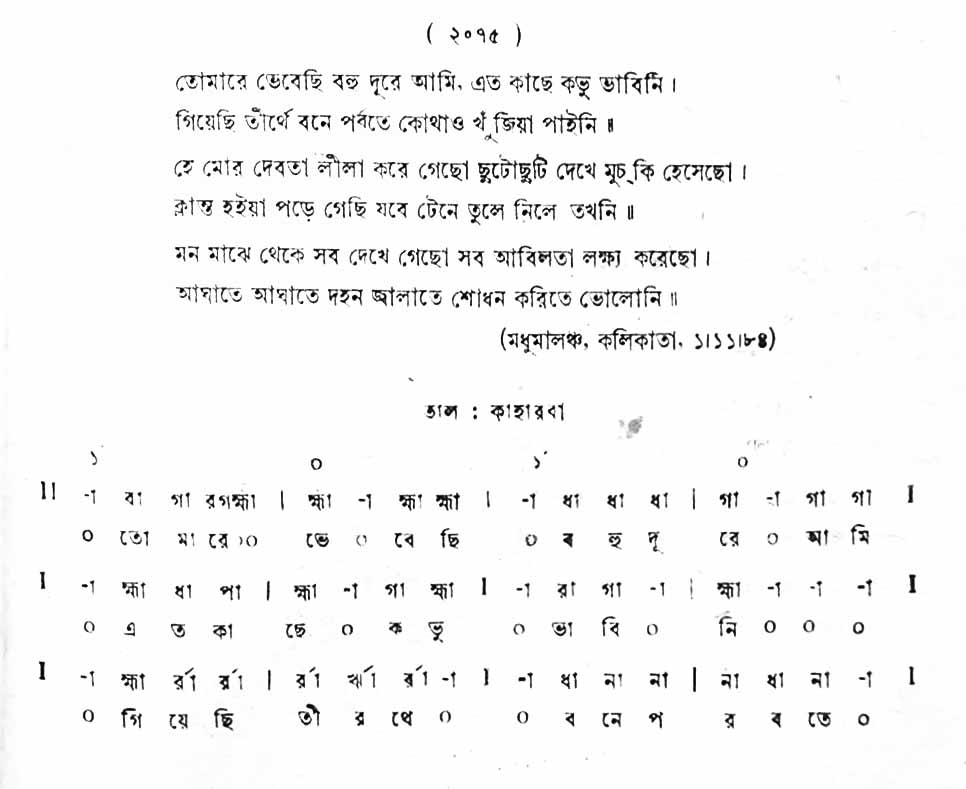 ( ২০৭৫ )
তোমারে ভেবেছি বহু দূরে আমি, এত কাছে কভু ভাবিনি ।
গিয়েছি তীর্থে বনে পর্বতে কোথাও খুঁজিয়া পাইনি ॥
হে মোর দেবতা লীলা করে গেছো ছুটোছুটি দেখে মুচ্‌কি হেসেছো ।
ক্লান্ত হইয়া পড়ে গেছি যবে টেনে তুলে নিলে তখনি ॥
মন মাঝে থেকে সব দেখে গেছো সব আবিলতা লক্ষ্য করেছো ।
আঘাতে আঘাতে দহন জ্বালাতে শোধন করিতে ভোলোনি ॥
(মধুমালঞ্চ, কলিকাতা, ১।১১।৮৪)
তাল : কাহারবা
১ ০ ১´ ০
II -া রা গা রগহ্মা | হ্মা -া হ্মা হ্মা I -া ধা ধা ধা | গা -া গা গা I
০ তো মা রে ০০ ভে ০ বে ছি ০ ব হু দূ রে ০ আ মি
I -া হ্মা ধা পা | হ্মা -া গা হ্মা I -া রা গা -া | হ্মা -া -া -া I
০ এ ত কা ছে ০ ক ভু ০ ভা বি ০ নি ০ ০ ০
I -া হ্মা র্রা র্রা | র্রা র্ঋা র্রা -া I -া ধা না না | না ধা না -া I
০ গি য়ে ছি তী র থে ০ ০ ব নে প র ব তে ০